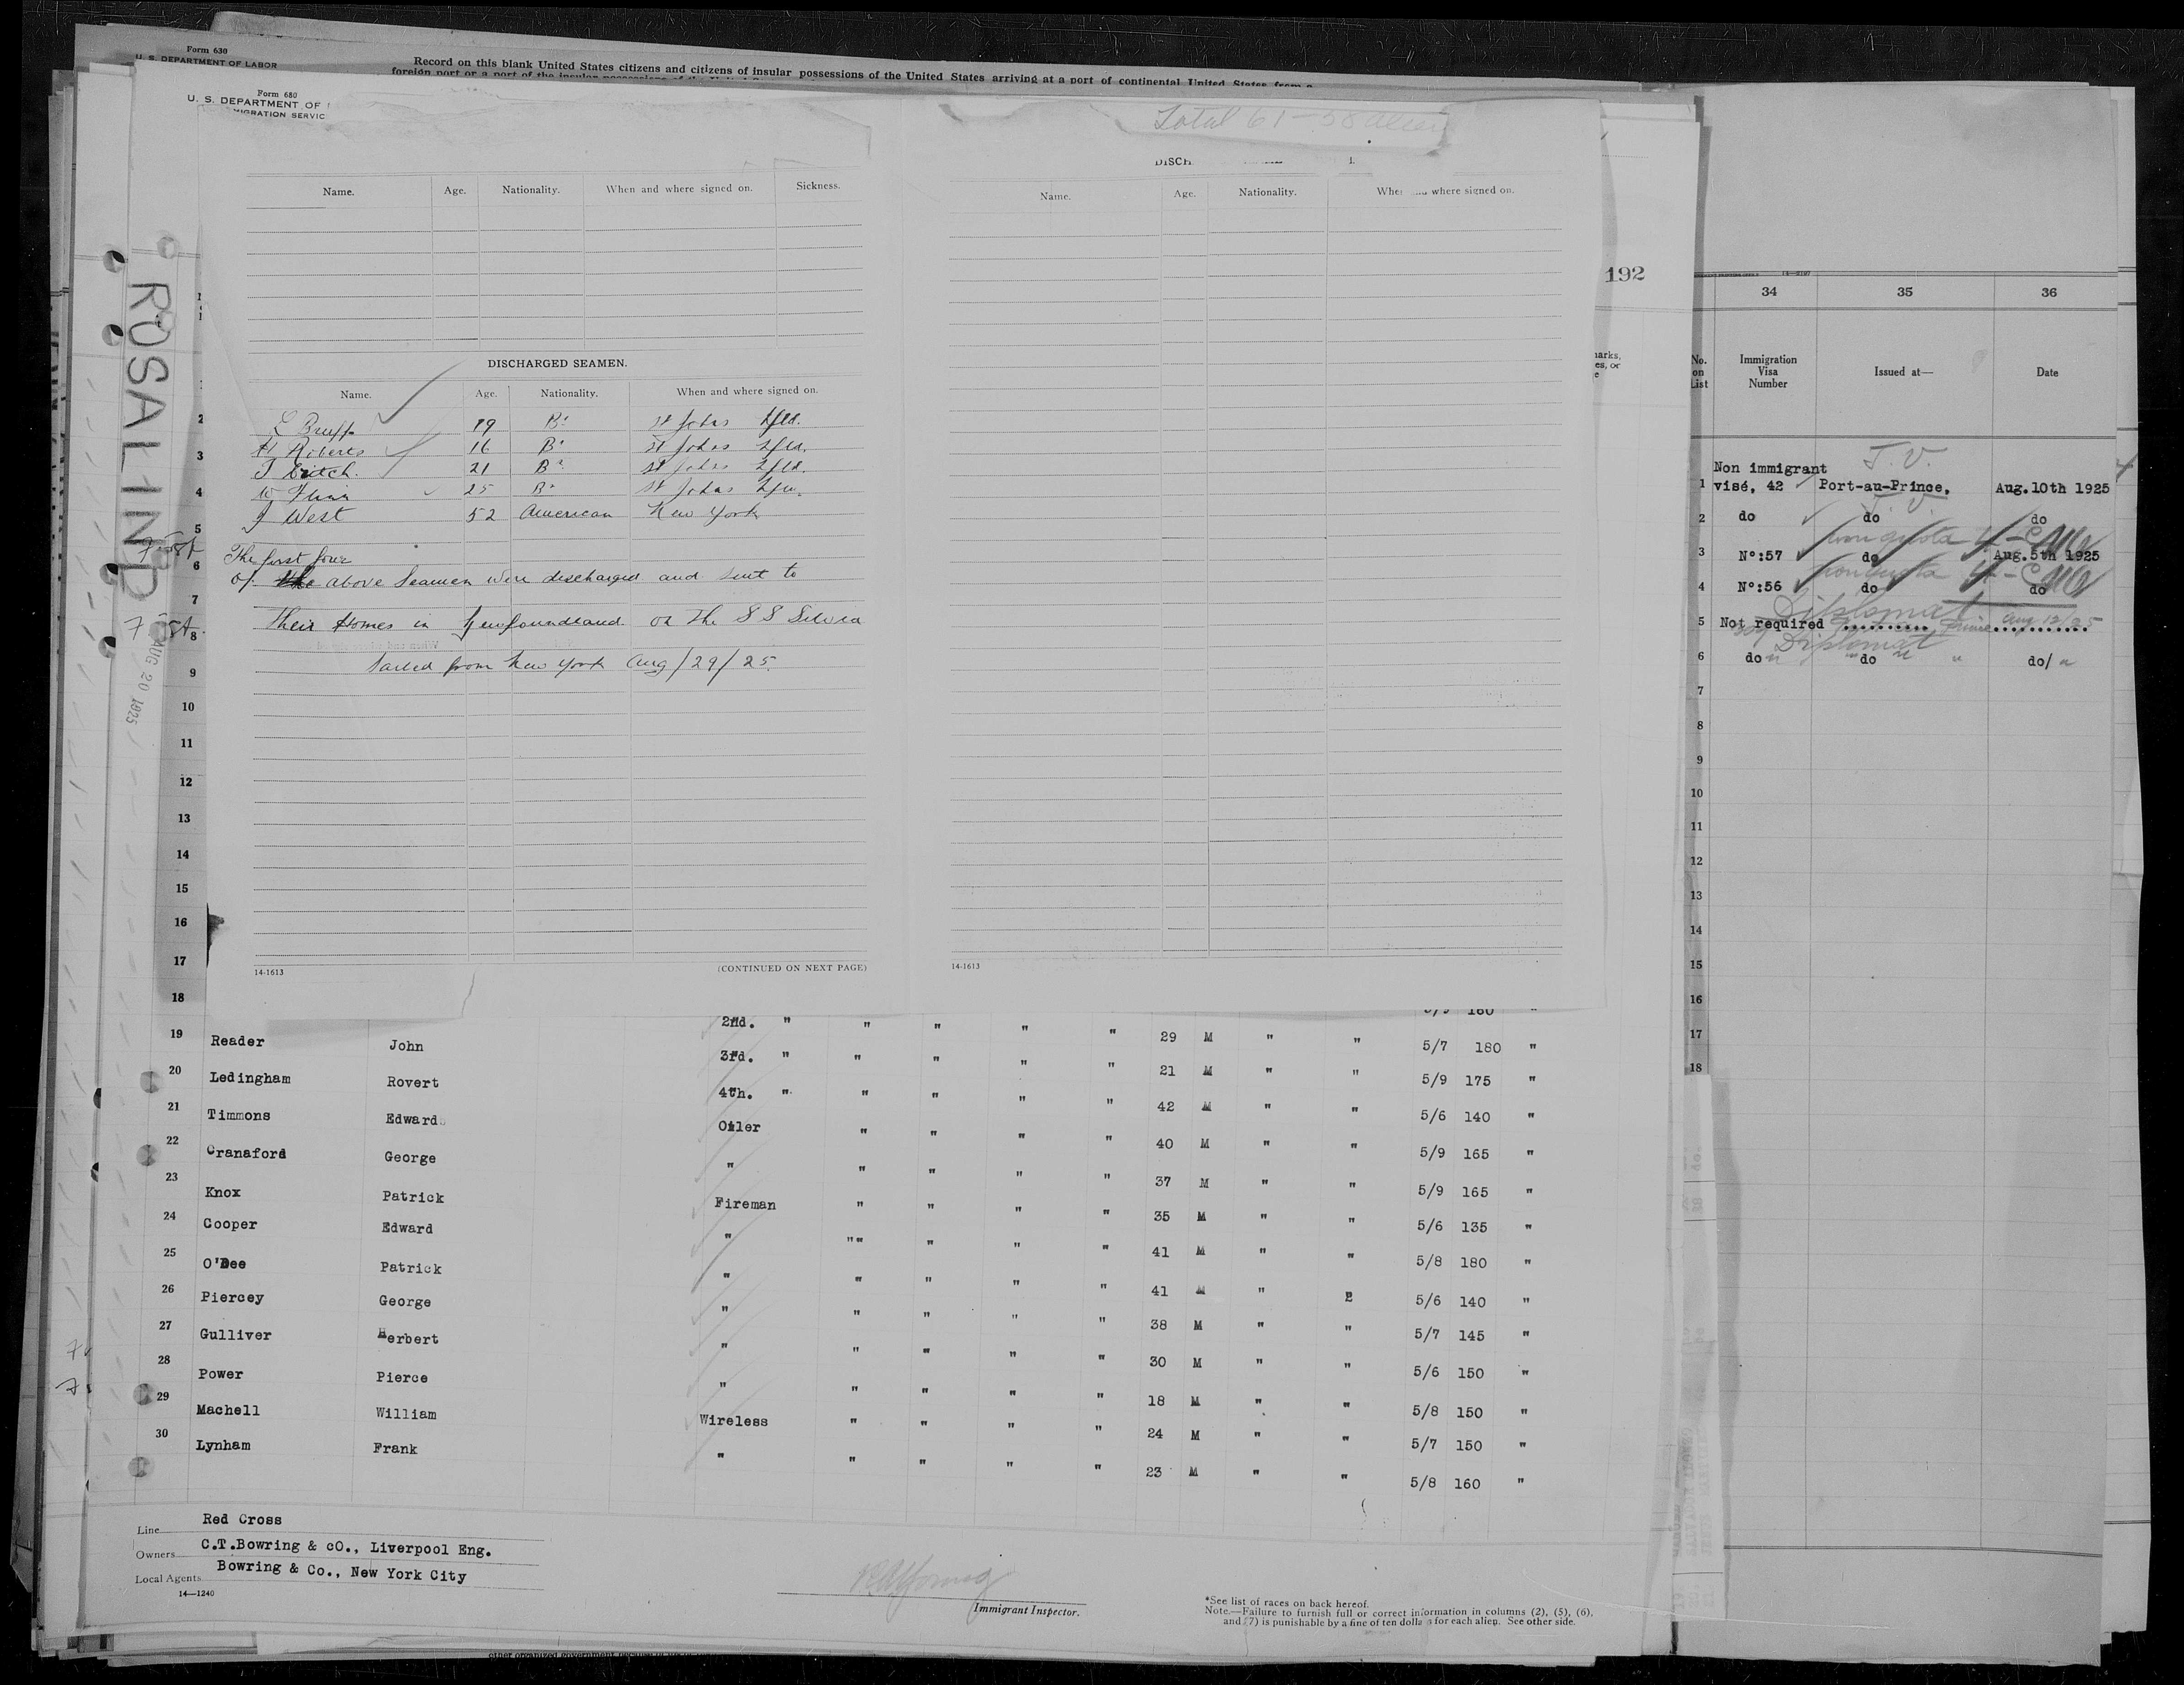 Form 630
U. S. DEPARTMENT OF LABOR
Record on this blank United States citizens and citizens of insular possessions of the United States arriving at a port of continental United States from a
Form 680
U. S. DEPARTMENT OF
MIGRATION SERVIC
Total 61-58 alien
DISCH
Name. Age. Nationality. When and where signed on. Sickness.
Name. Age. Nationality. where signed on.
ROSALIND
AUG 20 1925
DISCHARGED SEAMEN.
Name. Age. Nationality. When and where signed on.
19 Br St Johns Nfld.
H Roberts 16 Br St Johns Nfld.
21 Br St Johns Nfld.
W Flinn 25 Br St Johns Nfld.
J West 52 American New York
The first four
of above Seamen were discharged and sent to
their Homes in Newfoundland on the S S Silvia
Sailed from New York Aug/29/25.
2
3
4
5
6
7
8
9
10
11
12
13
14
15
16
17
18
14-1613 (CONTINUED ON NEXT PAGE)
14-1613
192
34 35 36
No. on List Immigration Visa Number Issued at— Date
T.V.
Non immigrant
1 visé, 42 Port-au-Prince, Aug.10th 1925
T.V.
2 do do do
non quota 4-C
3 Nº:57 do Aug.5th 1925
non quota 4-C
4 Nº:56 do do
Diplomat
5 Not required Prince Aug 12/25
Diplomat
6 do " do " " do/ "
7
8
9
10
11
12
13
14
15
16
17
18
2nd. " " " " " 5/9 160 "
19 Reader John 3rd. " " " " " 29 M " " 5/7 180 "
20 Ledingham Rovert 4th. " " " " " 21 M " " 5/9 175 "
21 Timmons Edward Oiler " " " " 42 M " " 5/6 140 "
22 Cranaford George " " " " " 40 M " " 5/9 165 "
23 Knox Patrick Fireman " " " " 37 M " " 5/9 165 "
24 Cooper Edward " "" " " " 35 M " " 5/6 135 "
25 O'Dee Patrick " " " " " 41 M " " 5/8 180 "
26 Piercey George " " " " " 41 M " " 5/6 140 "
27 Gulliver Herbert " " " " " 38 M " " 5/7 145 "
28 Power Pierce " " " " " 30 M " " 5/6 150 "
29 Machell William Wireless " " " " 18 M " " 5/8 150 "
30 Lynham Frank " " " " " 24 M " " 5/7 150 "
23 M " " 5/8 160 "
Line Red Cross
Owners C.T.Bowring & cO., Liverpool Eng.
Local Agents Bowring & Co., New York City
14—1240
Immigrant Inspector.
*See list of races on back hereof.
Note.—Failure to furnish full or correct information in columns (2), (5), (6),
and (7) is punishable by a fine of ten dollars for each alien. See other side.